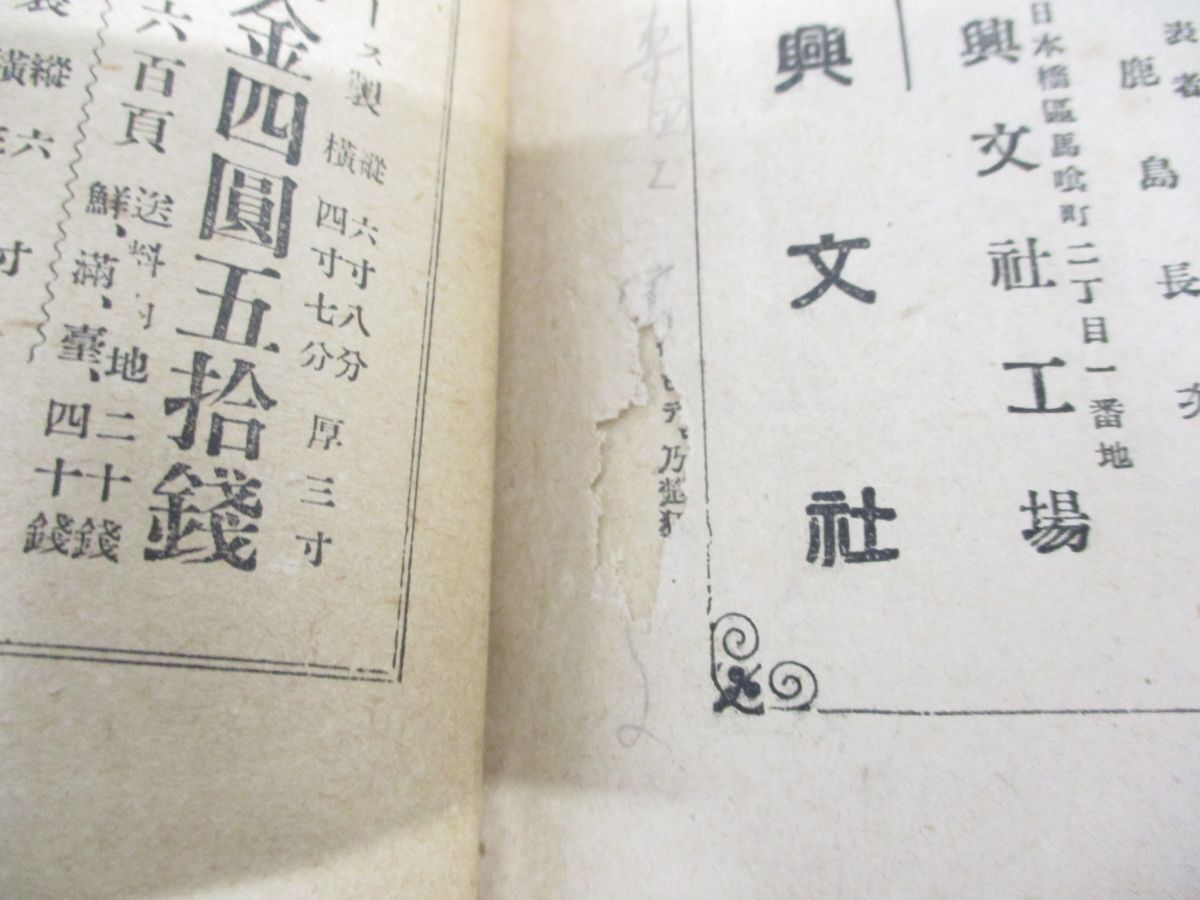 鹿島長
日本橋區馬喰町二丁目一番地
興文社工場
興文社
乃至
ース製
縱六寸八分
橫四寸七分
厚三寸
金四圓五拾錢
六百頁
送料內地二十錢
鮮、滿、臺、四十錢
縱六
橫
寸